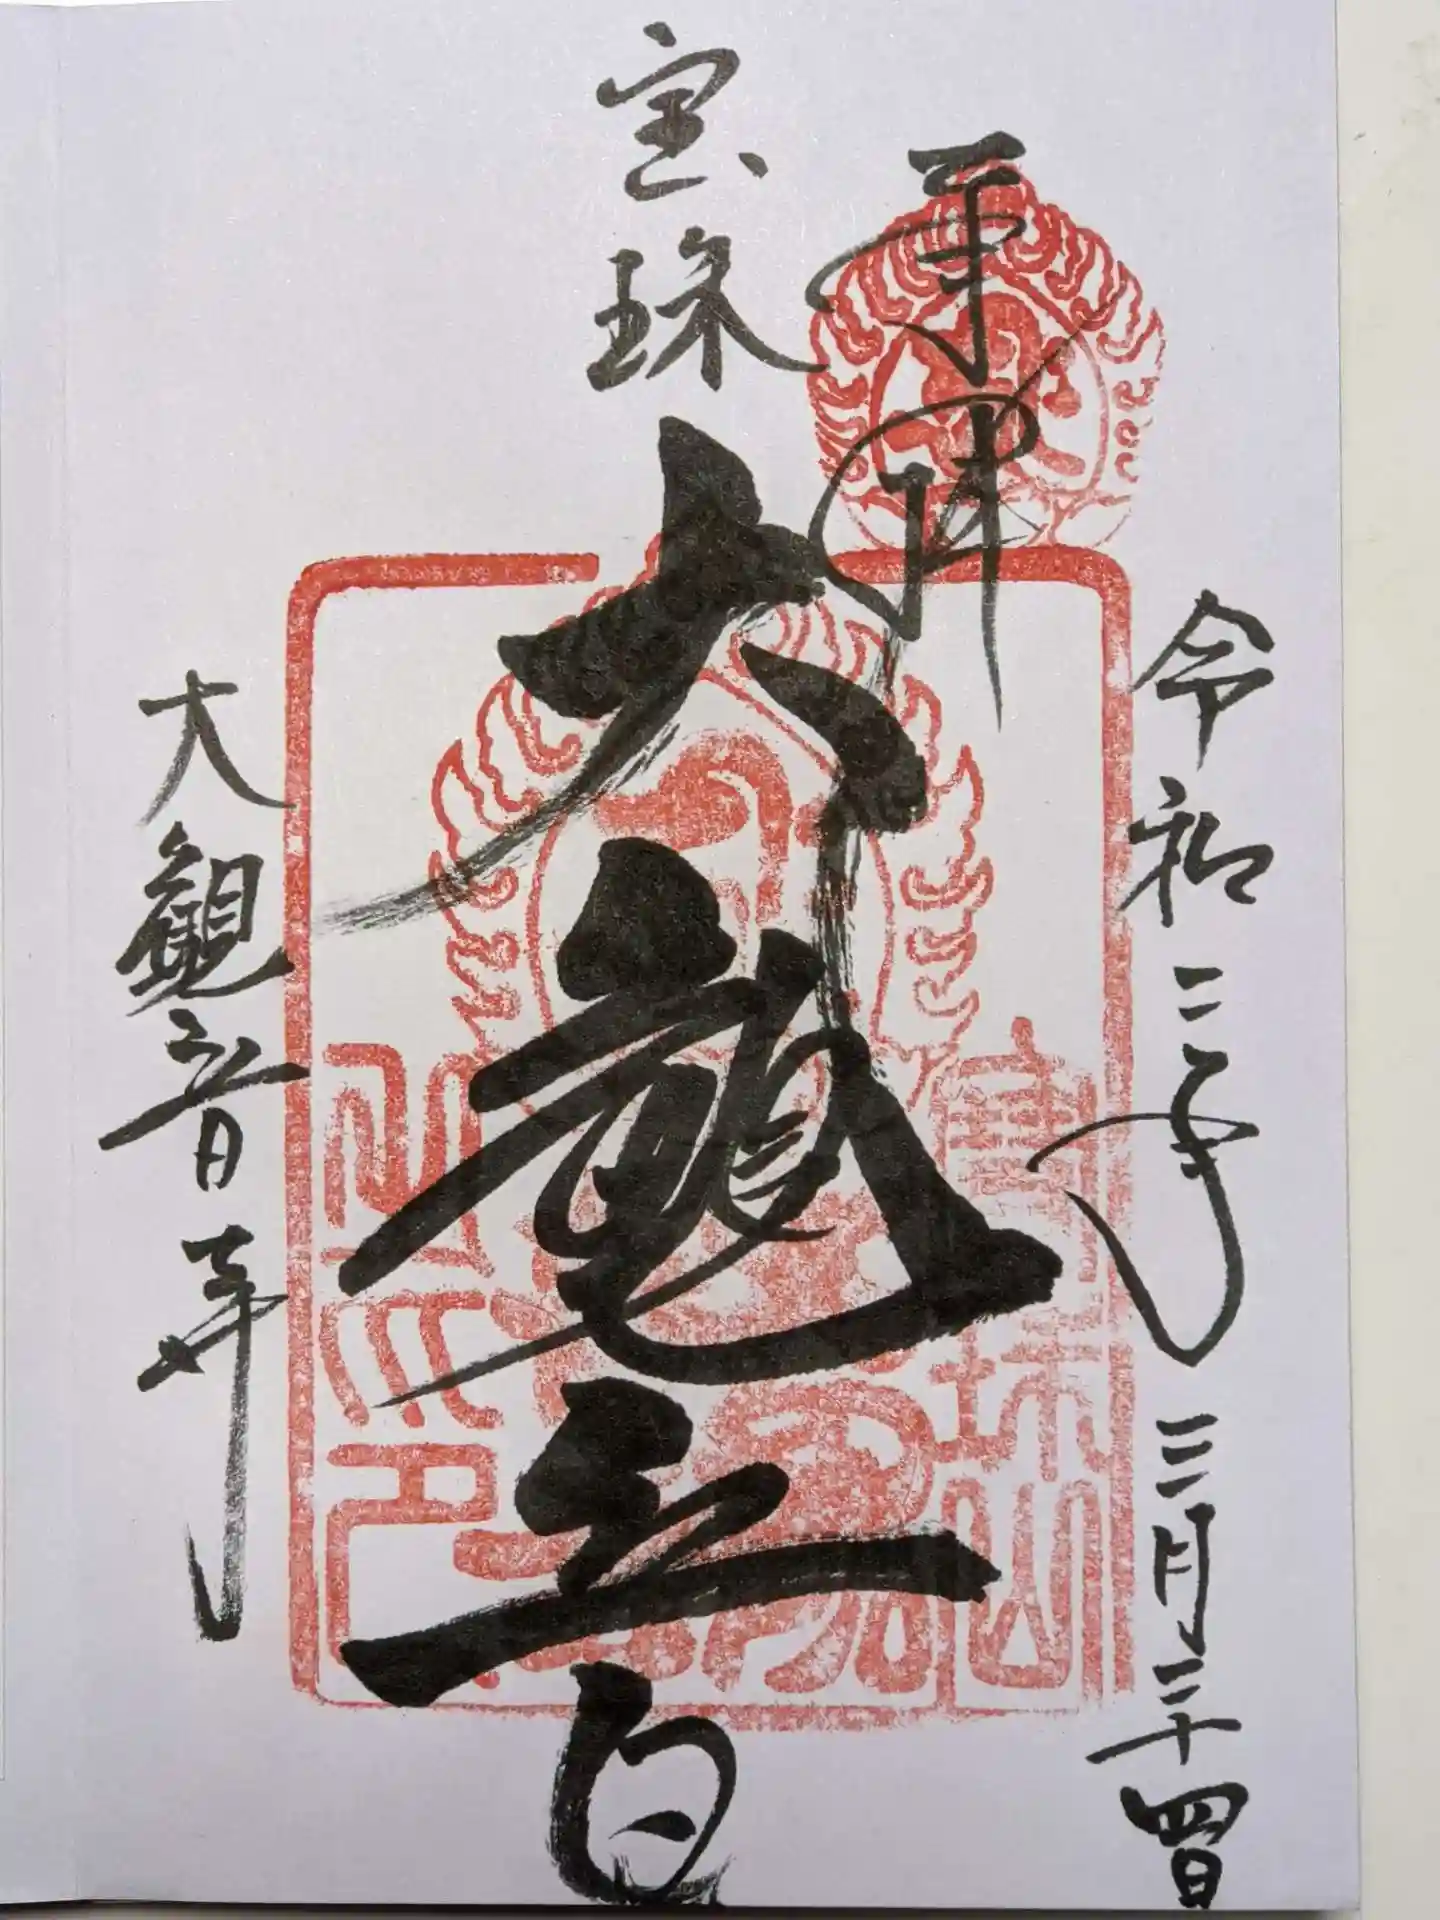 奉拝
令和三年三月二十四日
宝珠
大観音
大観音寺